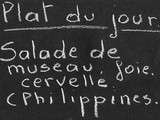 Plat du jour
Salade de
museau, joie.
cervelle
(Philippines.